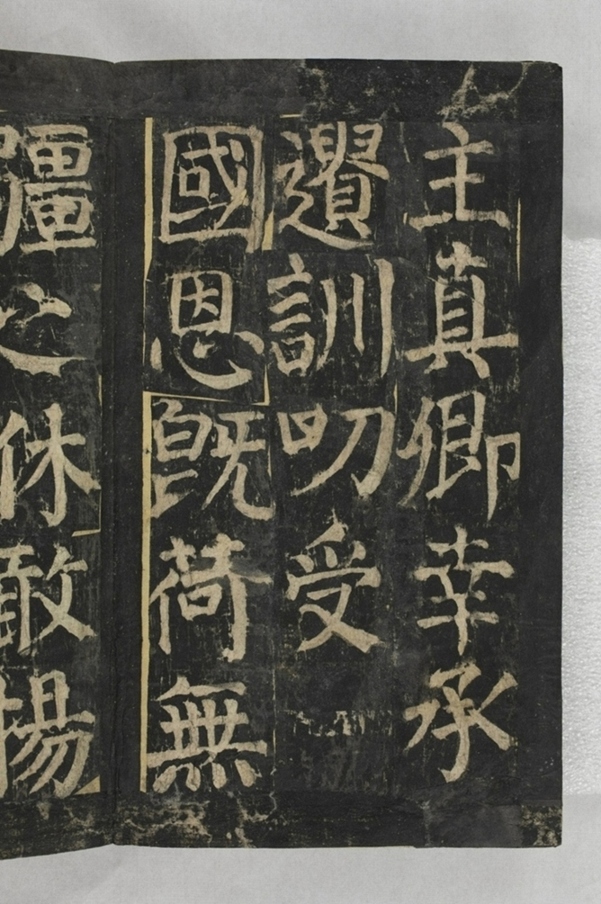 主真卿幸承
遺訓叨受
國恩既荷無
疆之休敢揚